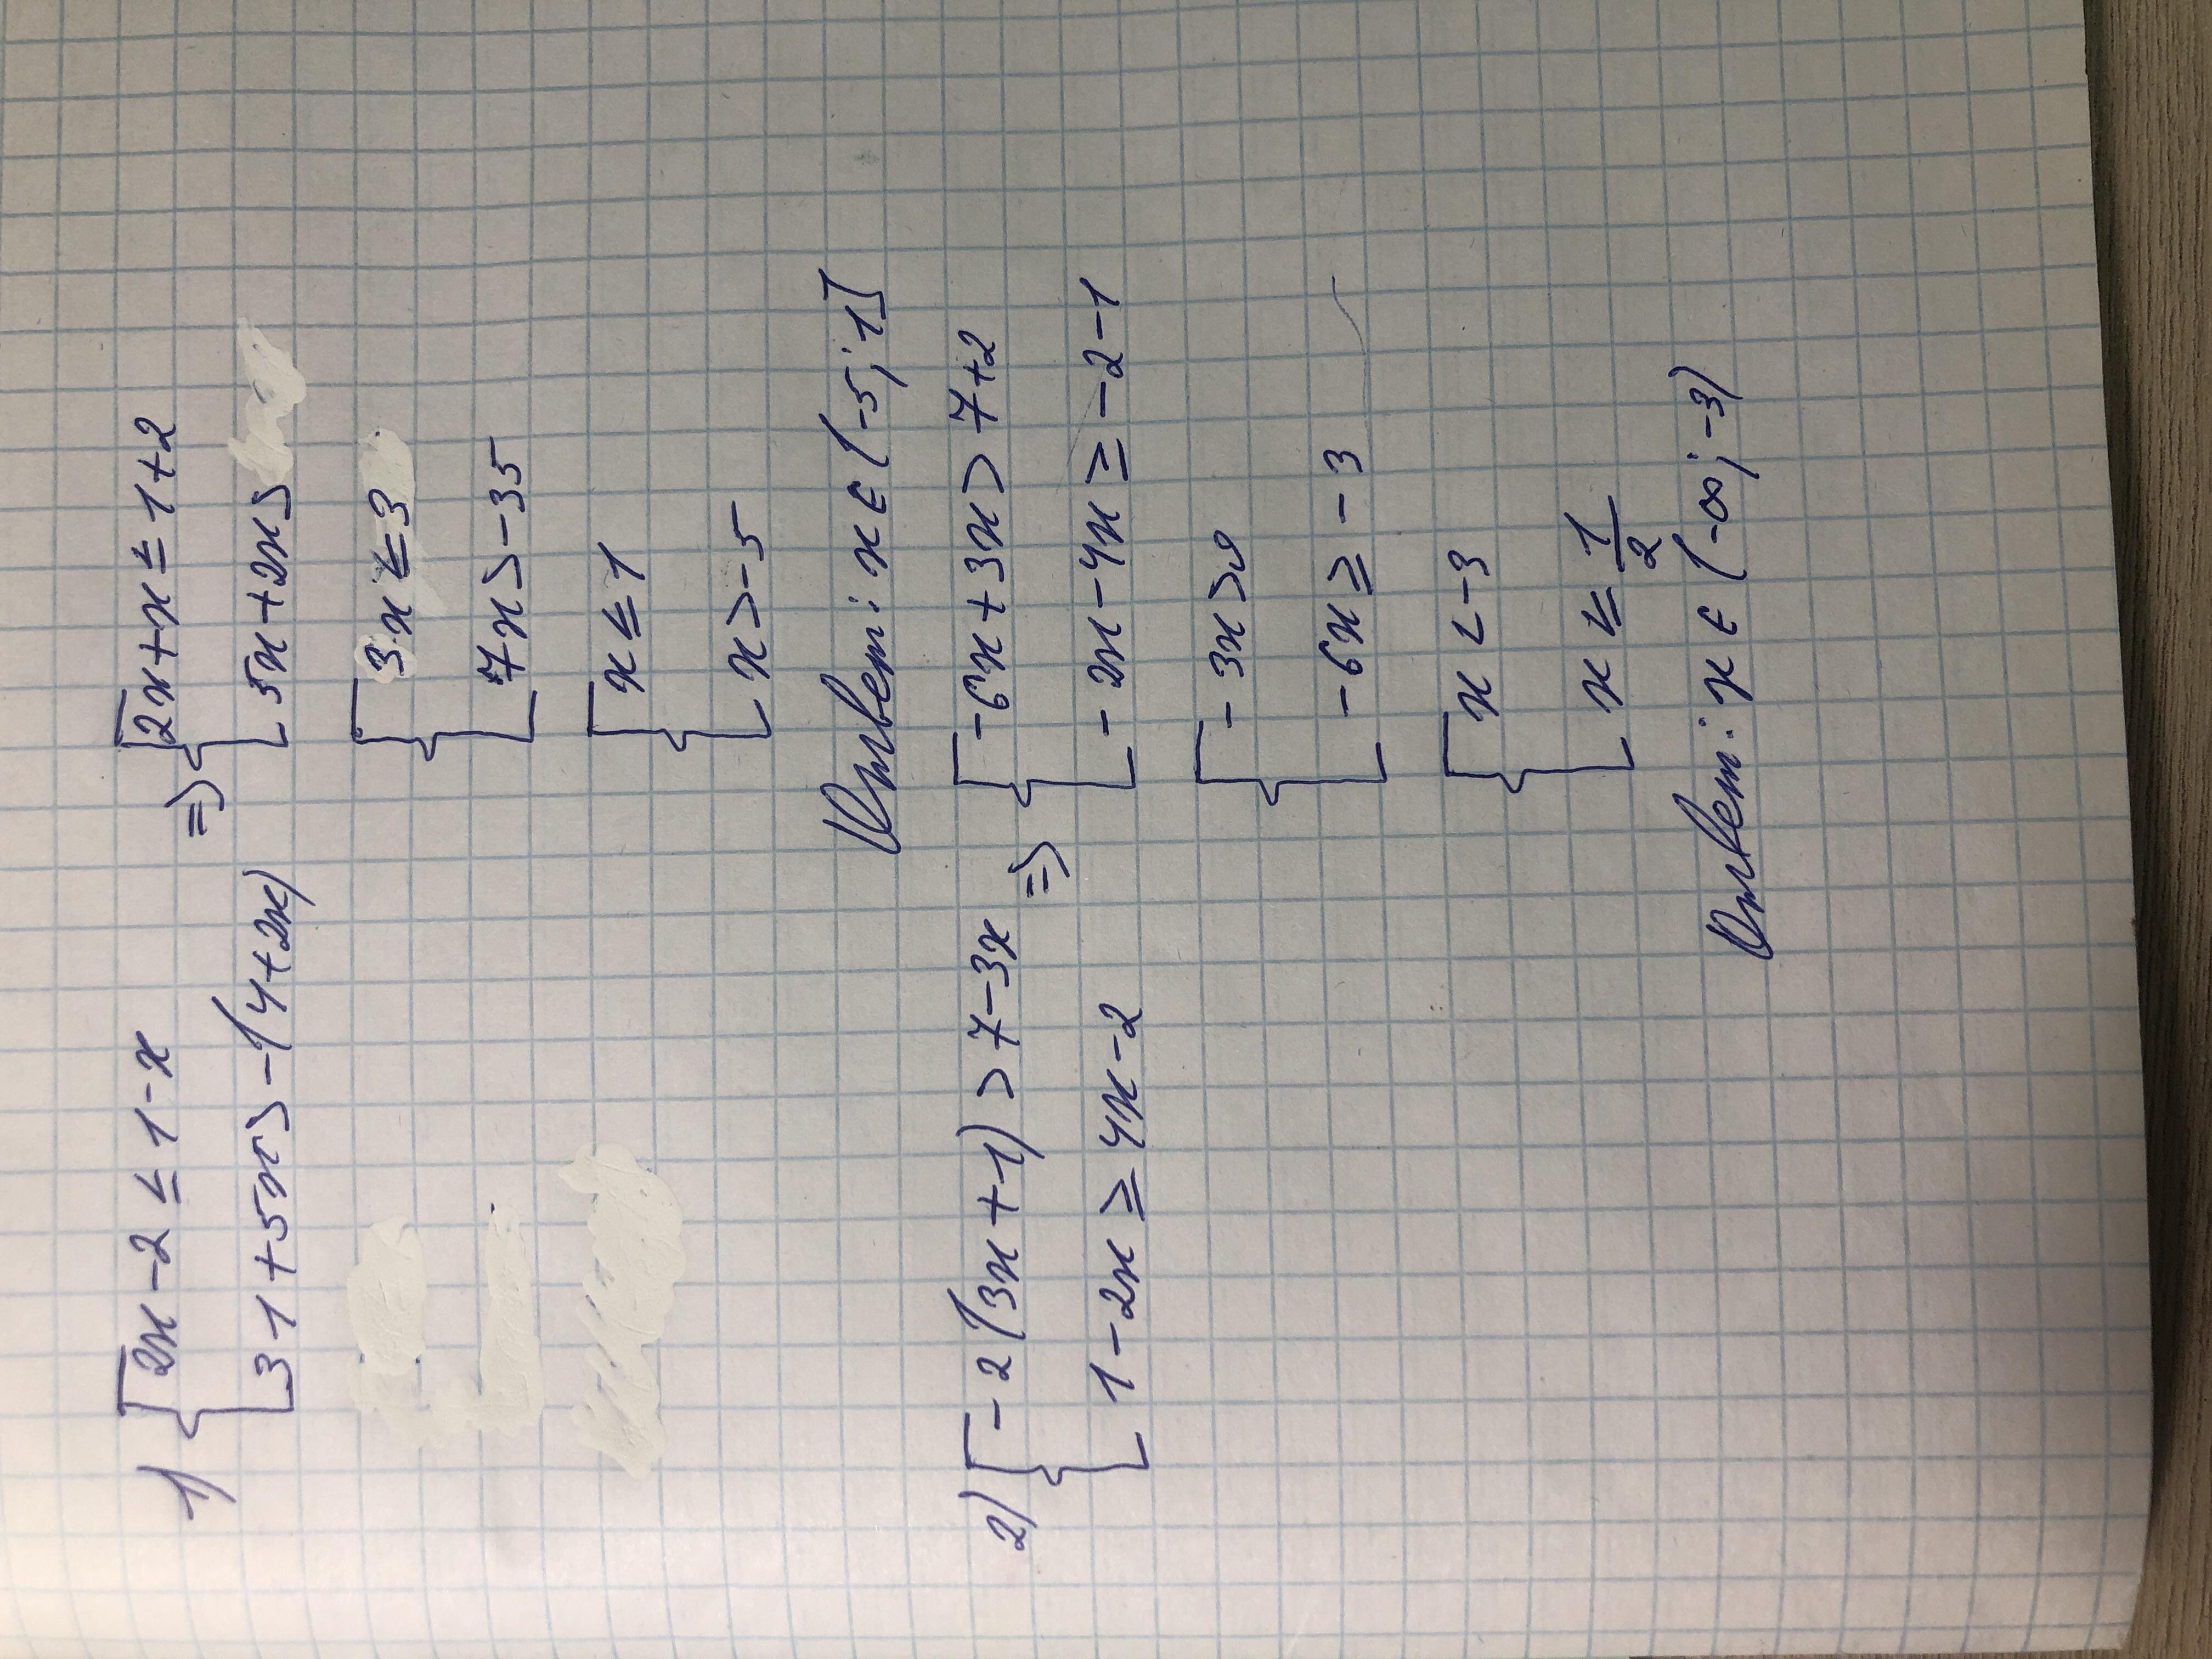 1) { 2x-2 ≤ 1-x => { 2x+x ≤ 1+2
31+5x > -(4+2x) 5x+2x >
{ 3x ≤ 3
7x > -35
{ x ≤ 1
x > -5
Ответ: x ∈ (-5; 1]
2) { -2(3x+1) > 7-3x => { -6x+3x > 7+2
1-2x ≥ 4x-2 -2x-4x ≥ -2-1
{ -3x > 9
-6x ≥ -3
{ x < -3
x ≤ 1/2
Ответ: x ∈ (-∞; -3)